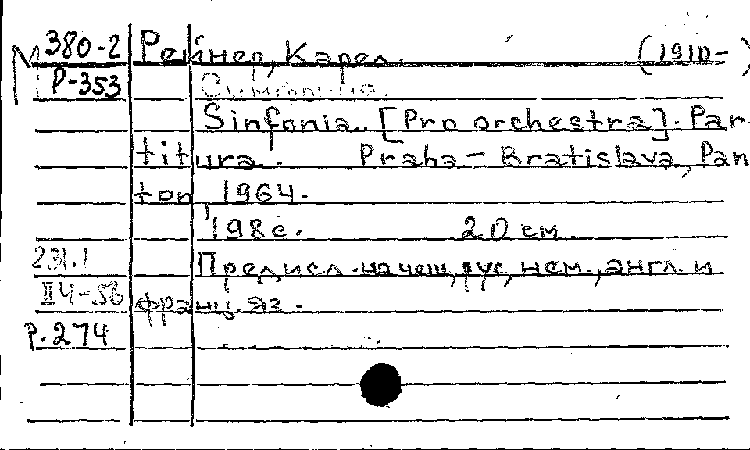 М 380-2 Рейнер, Карел. (1910-)
Р-353 Симфония.
Sinfonia. [Pro orchestra]. Par-
titura. Praha - Bratislava, Pan-
ton, 1964.
198с. 20 см.
231.1 Предисл. на чеш., рус., нем., англ. и
II 4-56 франц. яз.
Р.274